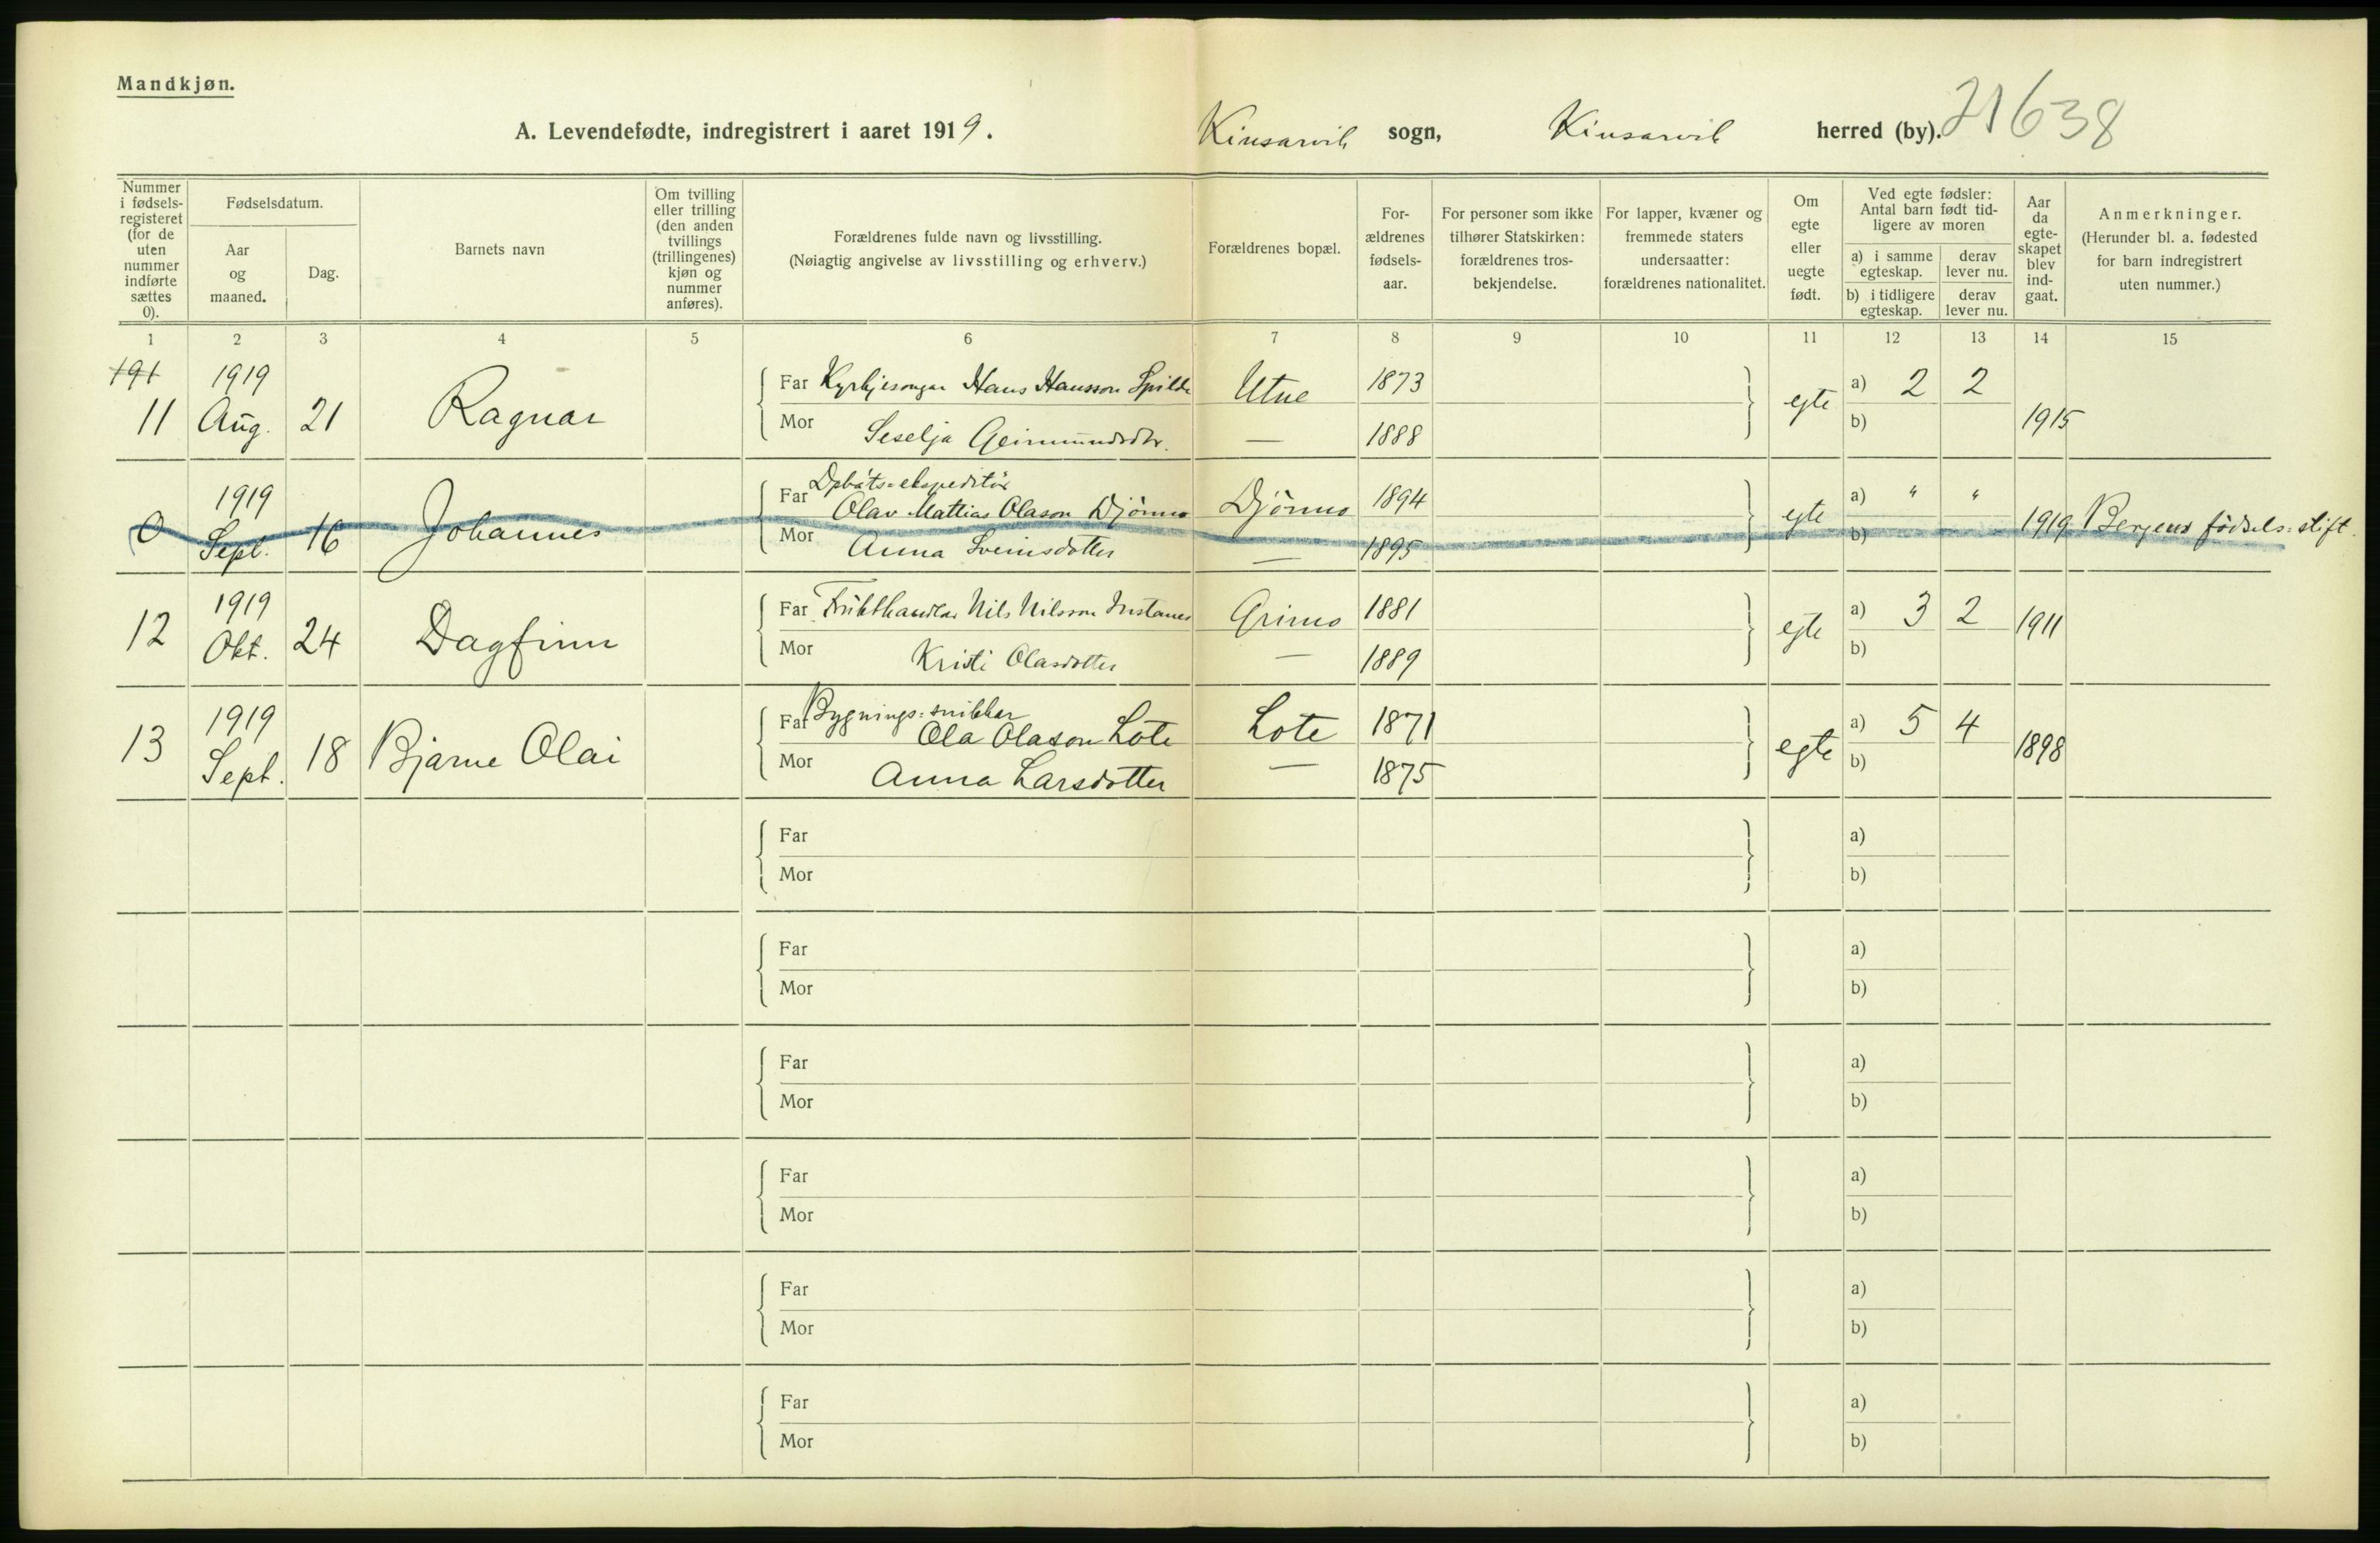 Mandkjøn.
A. Levendefødte, indregistrert i aaret 1919. Kinsarvik sogn, Kinsarvik herred (by). 21638
Nummer i fødsels-registeret (for de uten nummer indførte sættes 0).
Fødselsdatum.
Aar og maaned.
Dag.
Barnets navn
Om tvilling eller trilling (den anden tvillings (trillingenes) kjøn og nummer anføres).
Forældrenes fulde navn og livsstilling.
(Nøiagtig angivelse av livsstilling og erhverv.)
Forældrenes bopæl.
For-ældrenes fødsels-aar.
For personer som ikke tilhører Statskirken: forældrenes tros-bekjendelse.
For lapper, kvæner og fremmede staters undersaatter: forældrenes nationalitet.
Om egte eller uegte født.
Ved egte fødsler: Antal barn født tid-ligere av moren
a) i samme egteskap.
derav lever nu.
b) i tidligere egteskap.
derav lever nu.
Aar da egte-skapet blev ind-gaat.
Anmerkninger.
(Herunder bl. a. fødested for barn indregistrert uten nummer.)
1 2 3 4 5 6 7 8 9 10 11 12 13 14 15
191
11 1919 Aug. 21 Ragnar
Far Kyrkjesongar Hans Hansson Spilde Utne 1873 egte a) 2 2 1915
Mor Seselja Geirmundsdtr. — 1888 b)
0 1919 Sept. 16 Johannes
Far Dpbåts=ekspeditör
Olav Mattias Olason Djönno Djönno 1894 egte a) " " 1919 Bergens födsels=stift.
Mor Anna Sveinsdotter — 1895 b)
12 1919 Okt. 24 Dagfinn
Far Frukthandlar Nils Nilsson Instanes Grimo 1881 egte a) 3 2 1911
Mor Kristi Olasdotter — 1889 b)
13 1919 Sept. 18 Bjarne Olai
Far Bygnings=snikkar
Ola Olason Lote Lote 1871 egte a) 5 4 1898
Mor Anna Larsdotter — 1875 b)
Far a)
Mor b)
Far a)
Mor b)
Far a)
Mor b)
Far a)
Mor b)
Far a)
Mor b)
Far a)
Mor b)